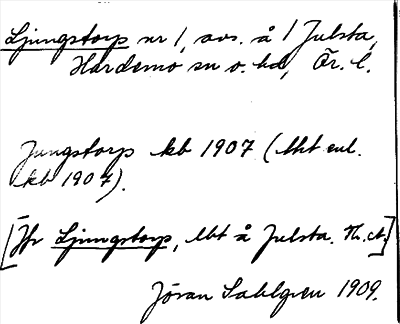 Ljungstorp nr 1, avs. å 1 Julsta,
Hardemo sn o. hd, Ör. l.
Jungstorp kb 1907 (lht enl.
kb 1907).
[Jfr Ljungstorp, lbt å Julsta. Th. ct.]
Jöran Sahlgren 1909.